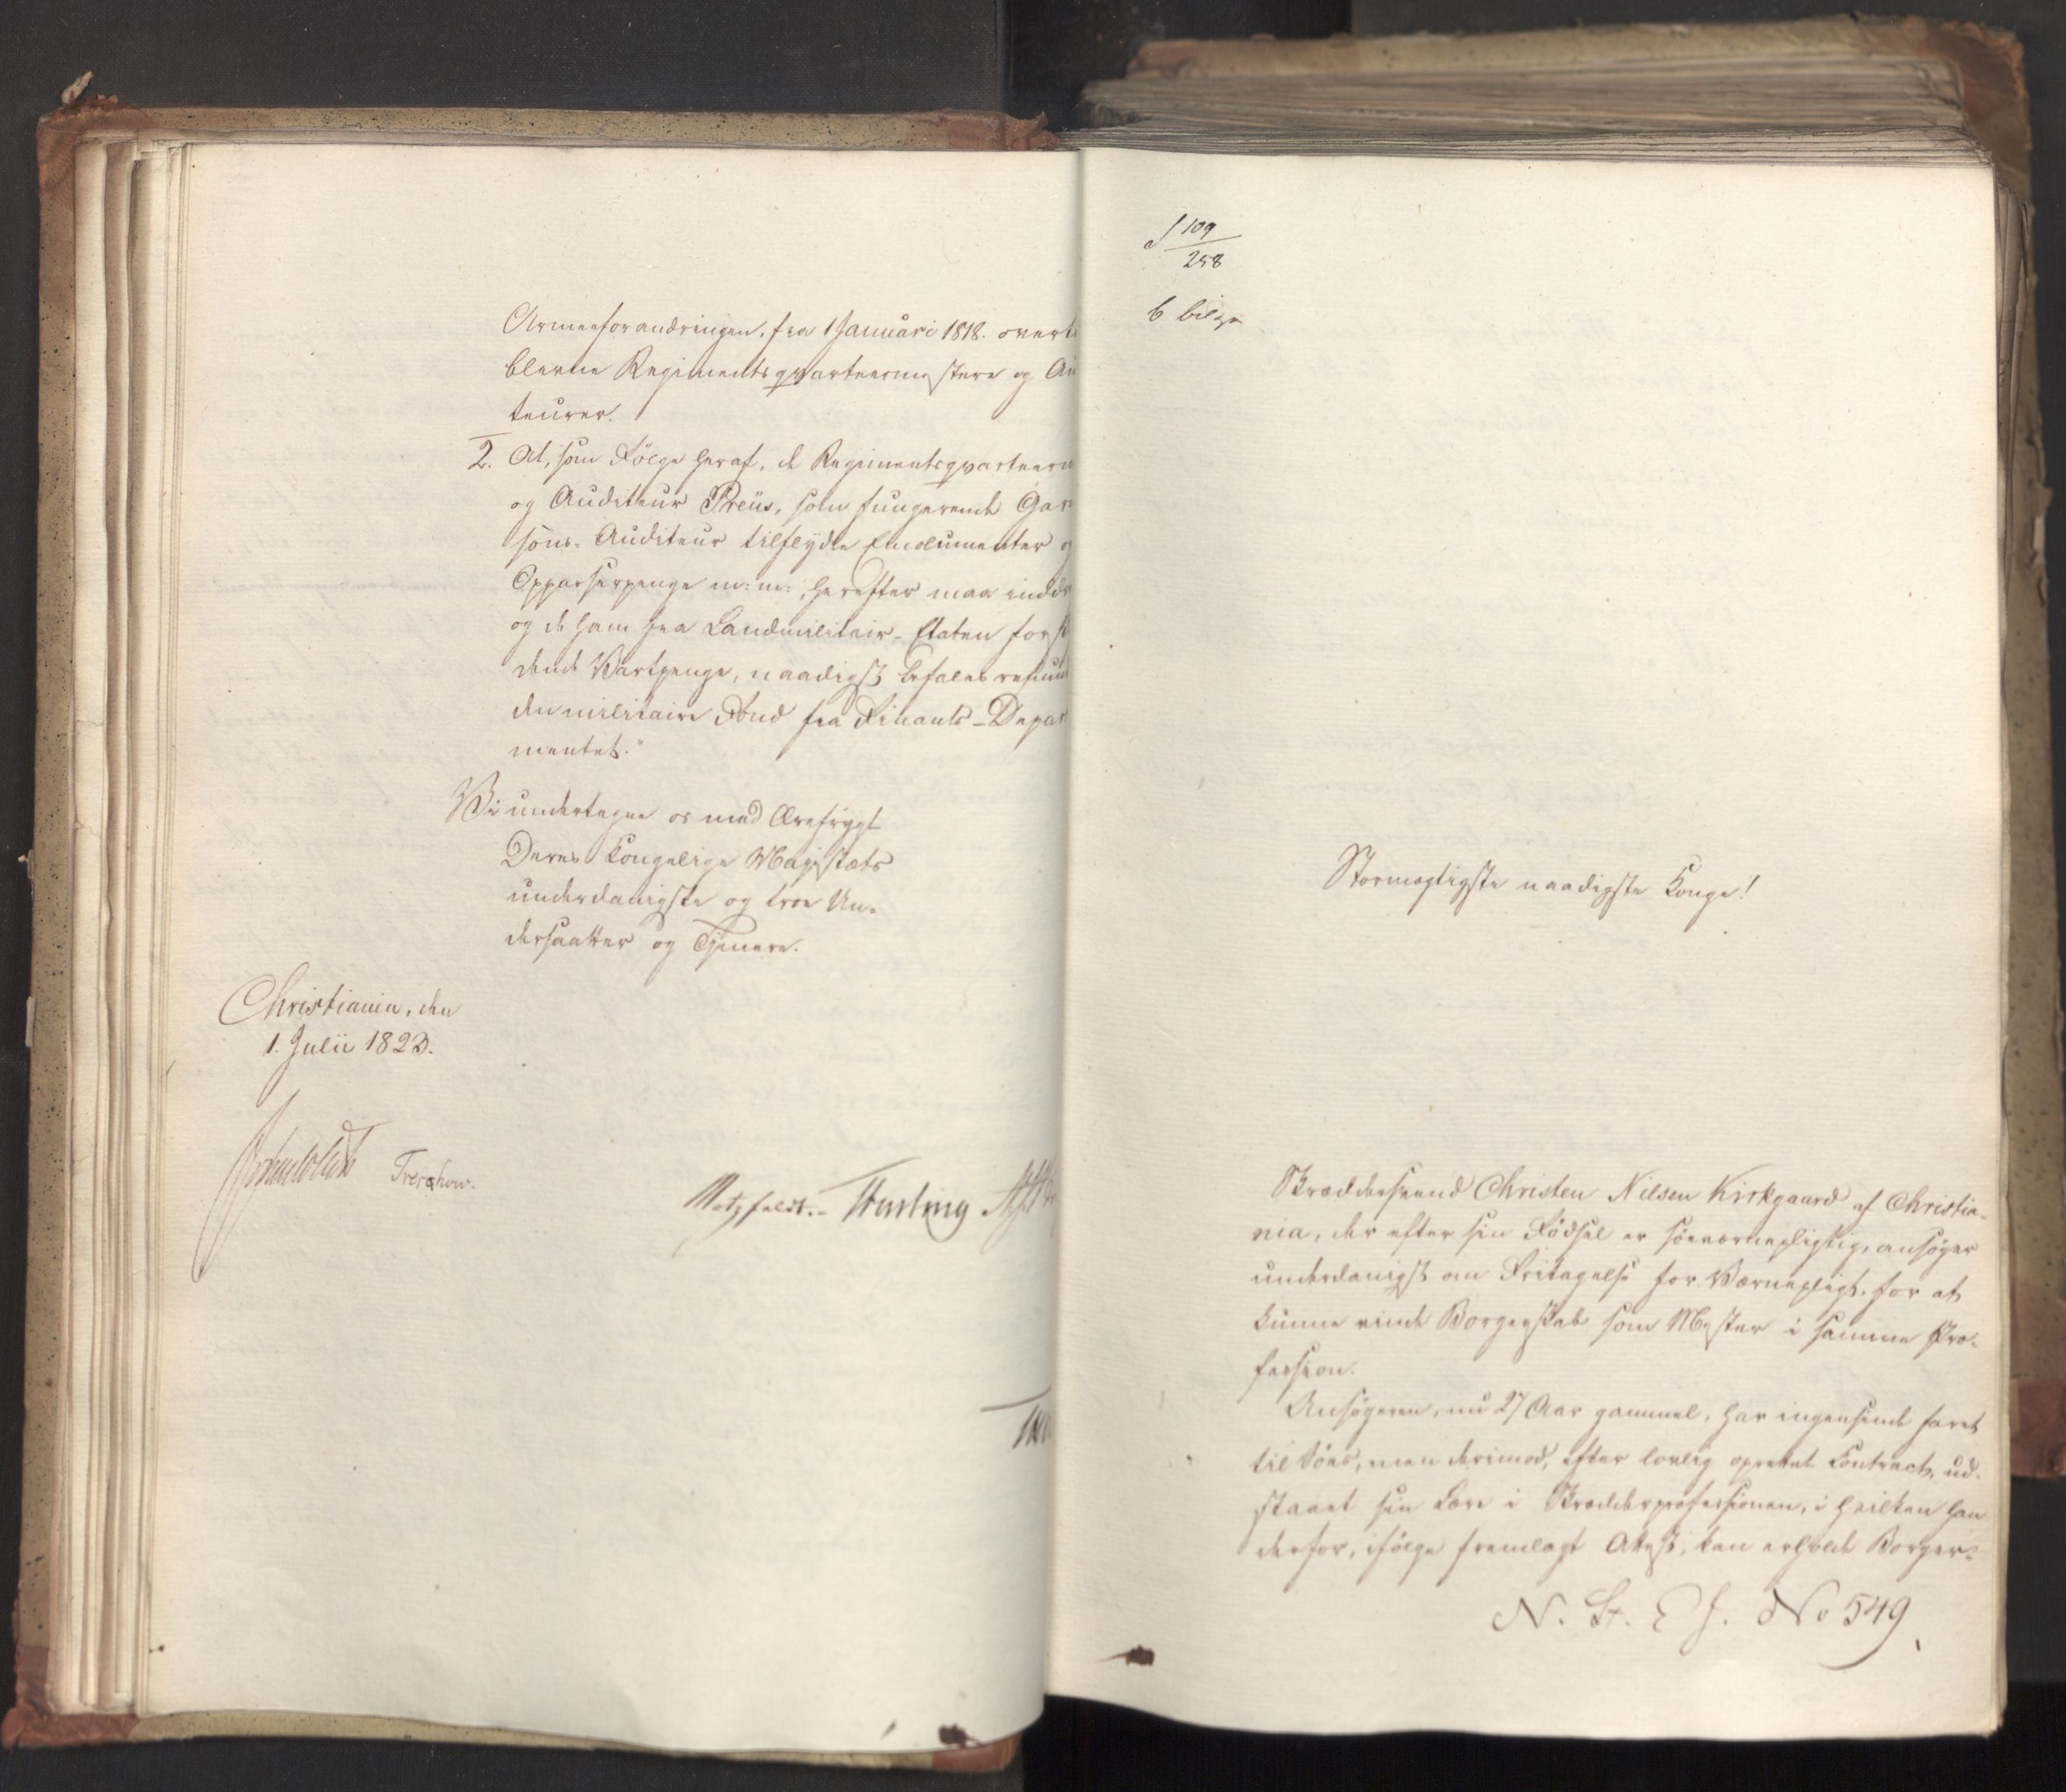 Armeeforandringen, fra 1 Januari 1818. overt
blevne Regimentsqvarteermestere og Au
teurer.
2. At, som Følge heraf, de Regimentsqvarteerm
og Auditeur Preüs, som fungerende Gar
sons-Auditeur tilflydte Emolumenter o
Oppasserpenge m: m:, herefter maa inddr
og de ham fra Landmilitair-Etaten
dende Vartpenge, naadigst befales
den militaire Fond fra Finants-Depar
mentet."
Vi undertegne os med Ærefrygt
Deres Kongelige Majestæts
underdanigste og troe Un-
dersaatter og Tjenere.
Christiania, den
1. Julii 1823.
Treschow.
Motzfeldt.- Fasting
109
258
6 bilge
Stormægtigste naadigste Konge!
Skræddersvend Christen Nilsen Kirkgaard af Christia-
nia, der efter sin Fødsel er søeværnepligtig, ansøger
underdanigst om Fritagelse for Værnepligt, for at
kunne vinde Borgerskab som Mester i samme Pro-
fession.
Ansøgeren, nu 27 Aar gammel, har ingensinde faret
til Søes, men derimod, efter lovlig oprettet Contract, ud-
staaet sin Lære i Skrædderprofessionen, i hvilken han
derfor, ifølge fremlagt Attest, kan erholde Borger-
N. St. E J. No 549